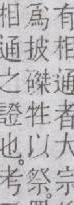 有相通者大宗
爲披磔牲以祭
相通之證也考